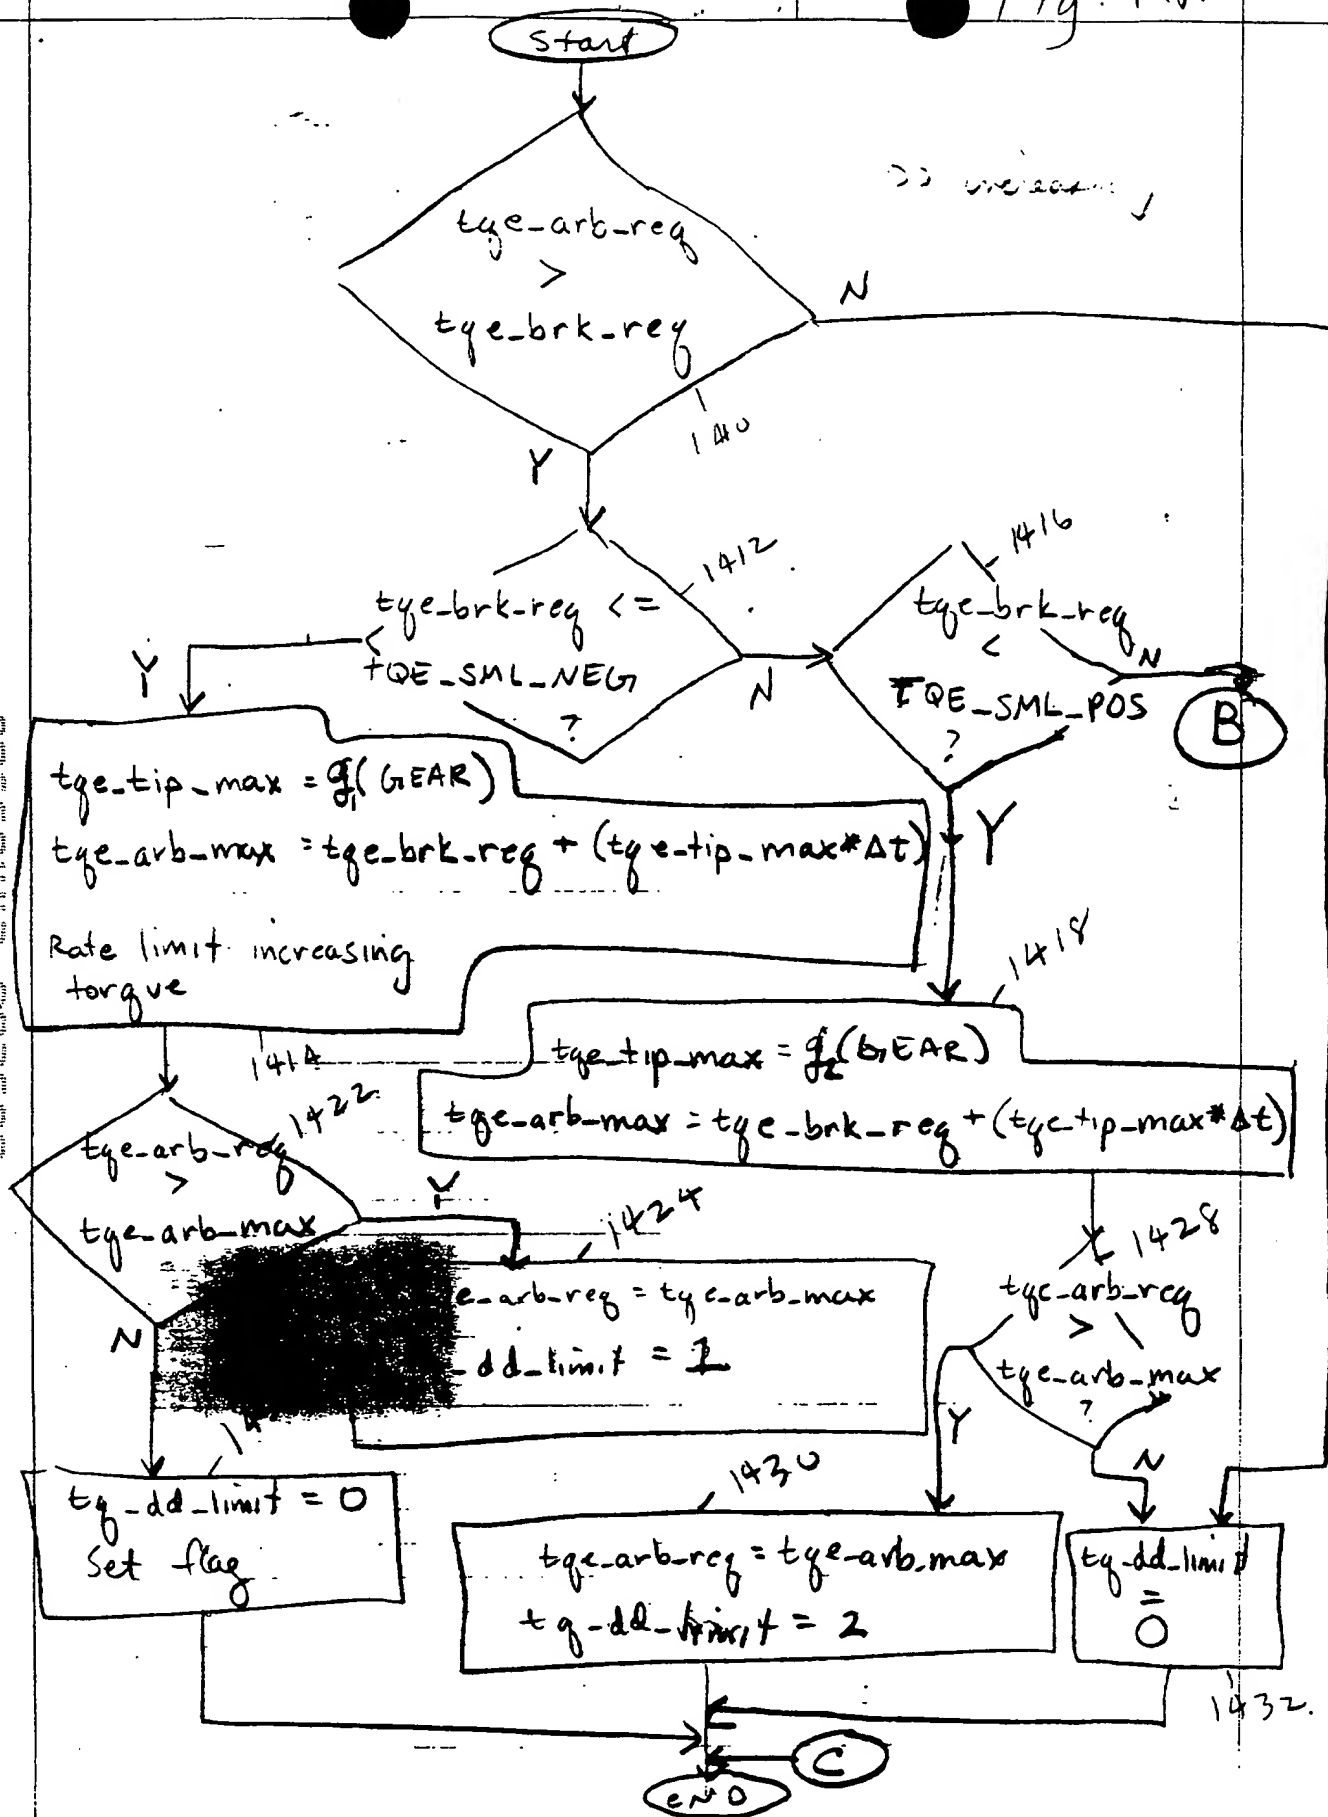 Start
tqe_arb_req
>
tqe_brk_req
N
Y
1412
1416
tqe_brk_req <=
TQE_SML_NEG
?
Y
N
tqe_brk_req
<
TQE_SML_POS
?
N
B
Y
tqe_tip_max = g1(GEAR)
tqe_arb_max = tqe_brk_req + (tqe_tip_max*Δt)
Rate limit increasing
torque
1414
1418
tqe_tip_max = g2(GEAR)
tqe_arb_max = tqe_brk_req + (tqe_tip_max*Δt)
1422
tqe_arb_req
>
tqe_arb_max
Y
N
1424
e_arb_req = tqe_arb_max
_dd_limit = 1
1428
tqe_arb_req
>
tqe_arb_max
?
Y
N
tq_dd_limit = 0
Set flag
1430
tqe_arb_req = tqe_arb_max
tq_dd_limit = 2
tq_dd_limit
=
0
1432
C
END